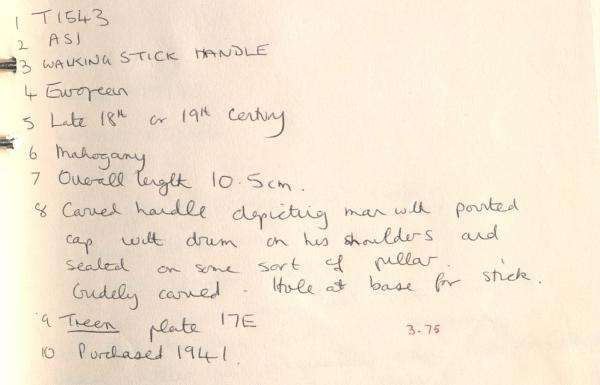 1 T1543
2 AS1
3 WALKING STICK HANDLE
4 European
5 Late 18th or 19th Century
6 Mahogany
7 Overall length 10.5cm.
8 Carved handle depicting man with pointed
cap with drum on his shoulders and
seated on some sort of pillar.
Crudely carved. Hole at base for stick.
9 Treen plate 17E
3-75
10 Purchased 1941.